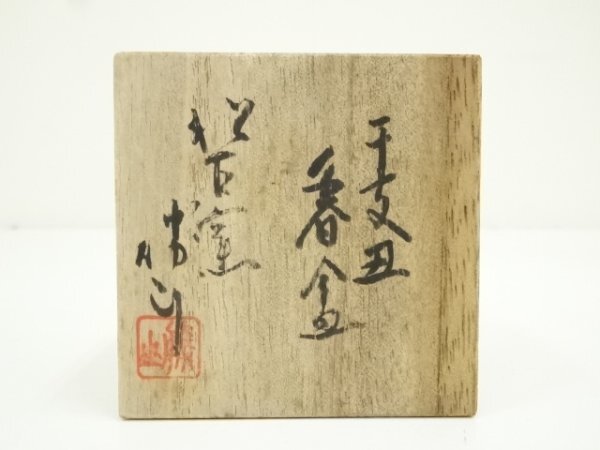 干支丑
香盒
松古窯
勝山